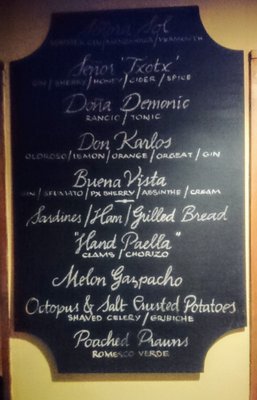 Señor 'Txotx'
GIN / SHERRY / HONEY / CIDER / SPICE
Doña Demonic
RANCIO / TONIC
Don Karlos
OLOROSO / LEMON / ORANGE / ORGEAT / GIN
Buena Vista
GIN / SFUMATO / PX SHERRY / ABSINTHE / CREAM
Sardines / Ham / Grilled Bread
"Hand Paella"
CLAMS / CHORIZO
Melon Gazpacho
Octopus & Salt Crusted Potatoes
SHAVED CELERY / GRIBICHE
Poached Prawns
ROMESCO VERDE